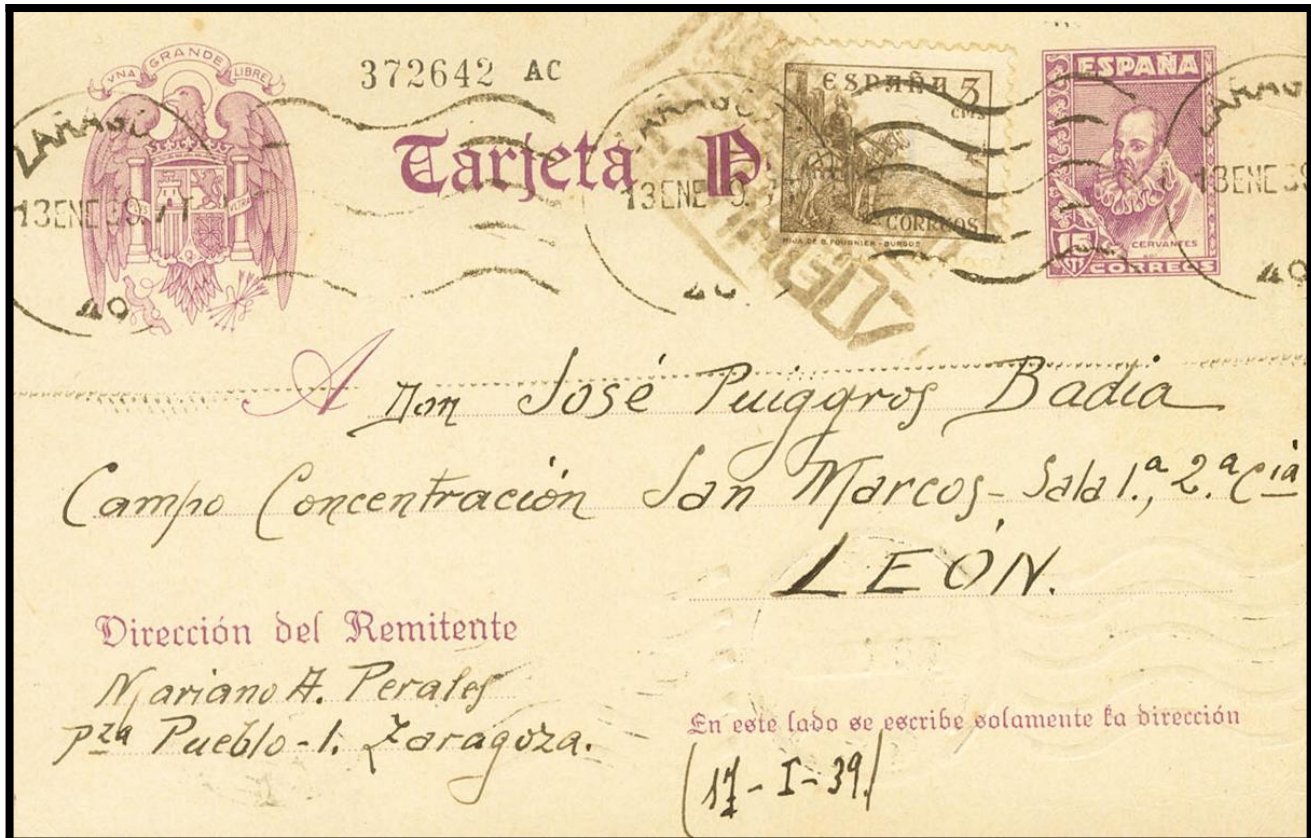 UNA GRANDE LIBRE
372642 AC
Tarjeta P
ESPAÑA 5
CTS
CORREOS
HIJA DE B. FOURNIER - BURGOS
ESPAÑA
15
CERVANTES
CORREOS
13 ENE 39
13 ENE 9
13 ENE 39
A Don José Puiggros Badia
Campo Concentración San Marcos - Sala 1.ª, 2.ª Cia
LEÓN.
Dirección del Remitente
Mariano A. Perales
Pza Pueblo - 1. Zaragoza.
En este lado se escribe solamente la dirección
(17 - I - 39.)